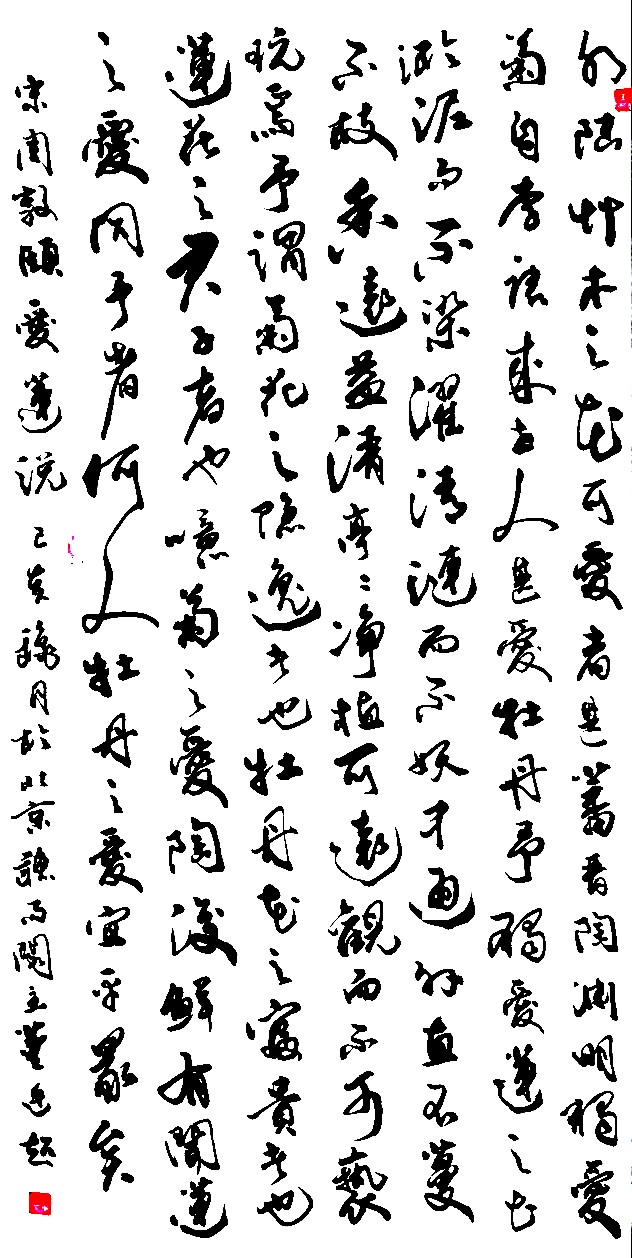 水陸艸木之花可愛者甚蕃晉陶淵明獨愛
菊自李唐來世人甚愛牡丹予獨愛蓮之出
淤泥而不染濯清漣而不妖中通外直不蔓
不枝香遠益清亭〻淨植可遠觀而不可褻
玩焉予謂菊花之隱逸者也牡丹花之富貴者也
蓮花之君子者也噫菊之愛陶後鮮有聞蓮
之愛同予者何人牡丹之愛宜乎眾矣
宋周敦頤愛蓮說 己亥臘月於北京聽雨閣主